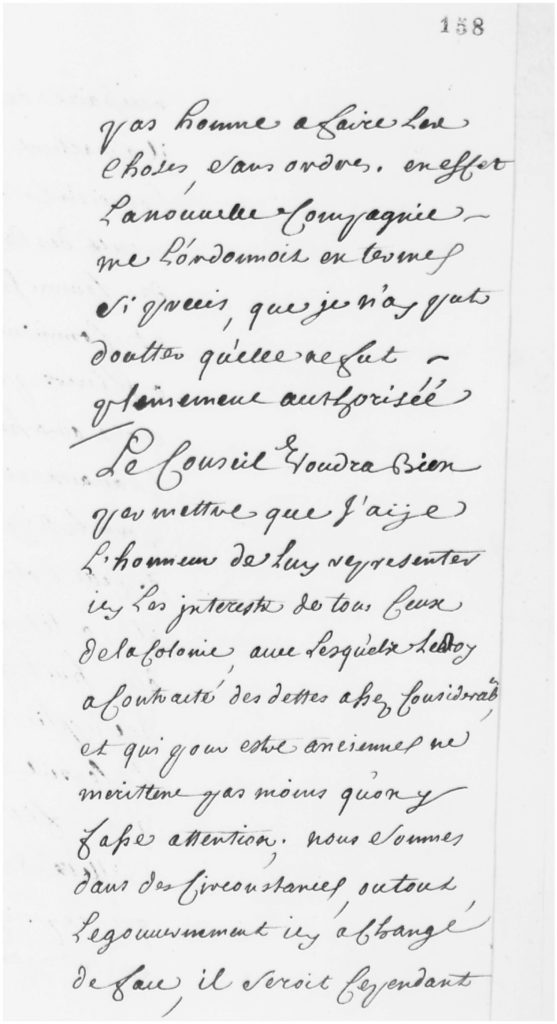 158
pas homme a faire Les
Choses, sans ordres. en effet
La nouvelle Compagnie
me L'ordonnoit en termes
si precis, que je n'ay put
doutter qu'elle ne fut
pleinement authorisée
Le Conseil Voudra Bien
permettre que J'aije
L'honneur de Luy representer
icy Les jnterests de tous Ceux
de la Colonie, avec Lesquels Le Roy
a Contracté des dettes assez Considerab
et qui pour estre anciennes ne
merittent pas moins qu'on y
fasse attention. nous sommes
dans des Circonstances, ou tout
Le gouvernement icy a Changé
de face, il seroit Cependant